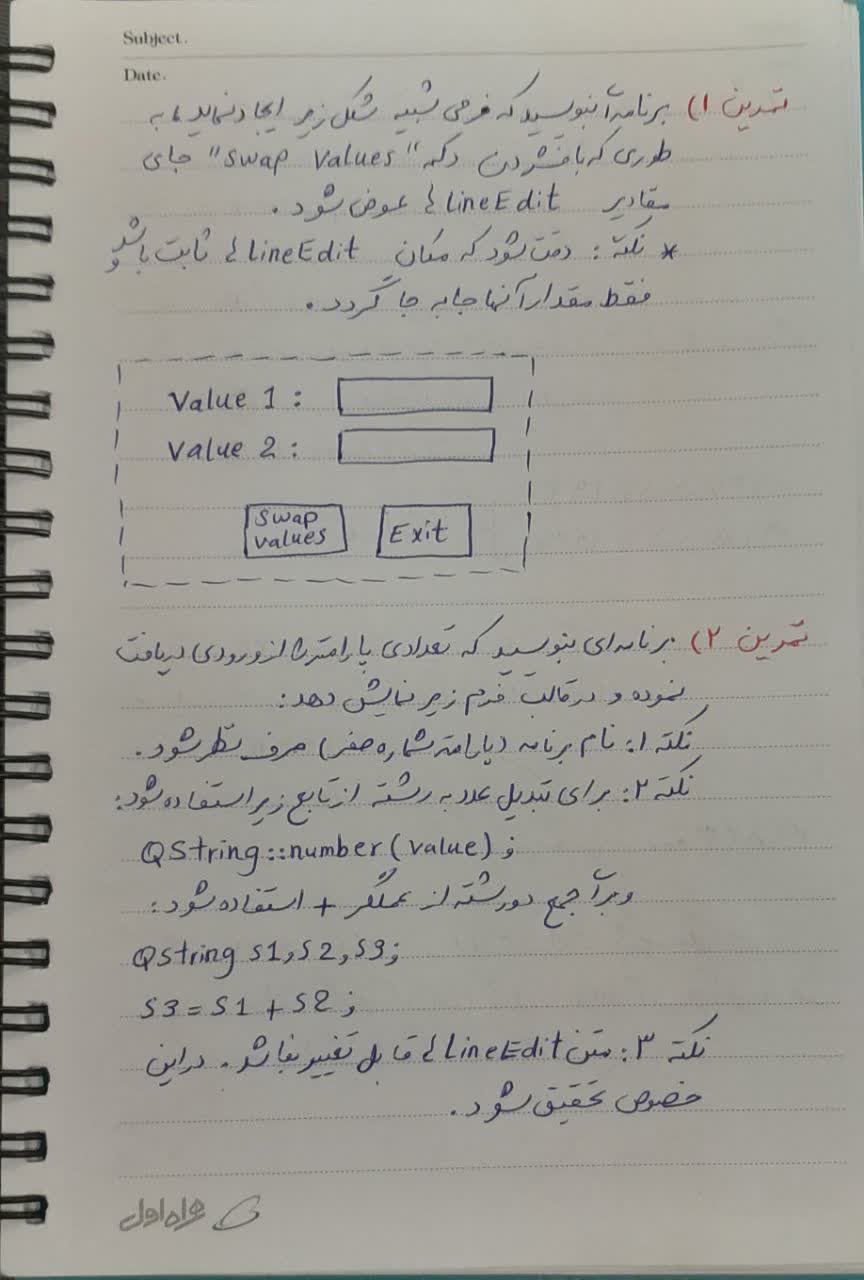 Subject.
Date.
تمرین ۱) برنامه‌ای بنویسید که فرمی شبیه شکل زیر ایجاد نماید، به
طوری که با فشردن دکمه "swap values" جای
مقادیر LineEdit ها عوض شود.
* نکته: دقت شود که مکان LineEdit ها ثابت باشد و
فقط مقدار آنها جابه جا گردد.
Value 1 :
Value 2 :
swap
values
Exit
تمرین ۲) برنامه‌ای بنویسید که تعدادی پارامتر را از ورودی دریافت
نموده و در قالب فرم زیر نمایش دهد:
نکته ۱: نام برنامه (پارامتر شماره صفر) صرف نظر شود.
نکته ۲: برای تبدیل عدد به رشته از تابع زیر استفاده شود:
QString::number(value);
و برای جمع دو رشته از عملگر + استفاده شود:
Qstring s1,s2,s3;
s3=s1+s2;
نکته ۳: متن LineEdit ها قابل تغییر نباشد. در این
خصوص تحقیق شود.
همراه اول